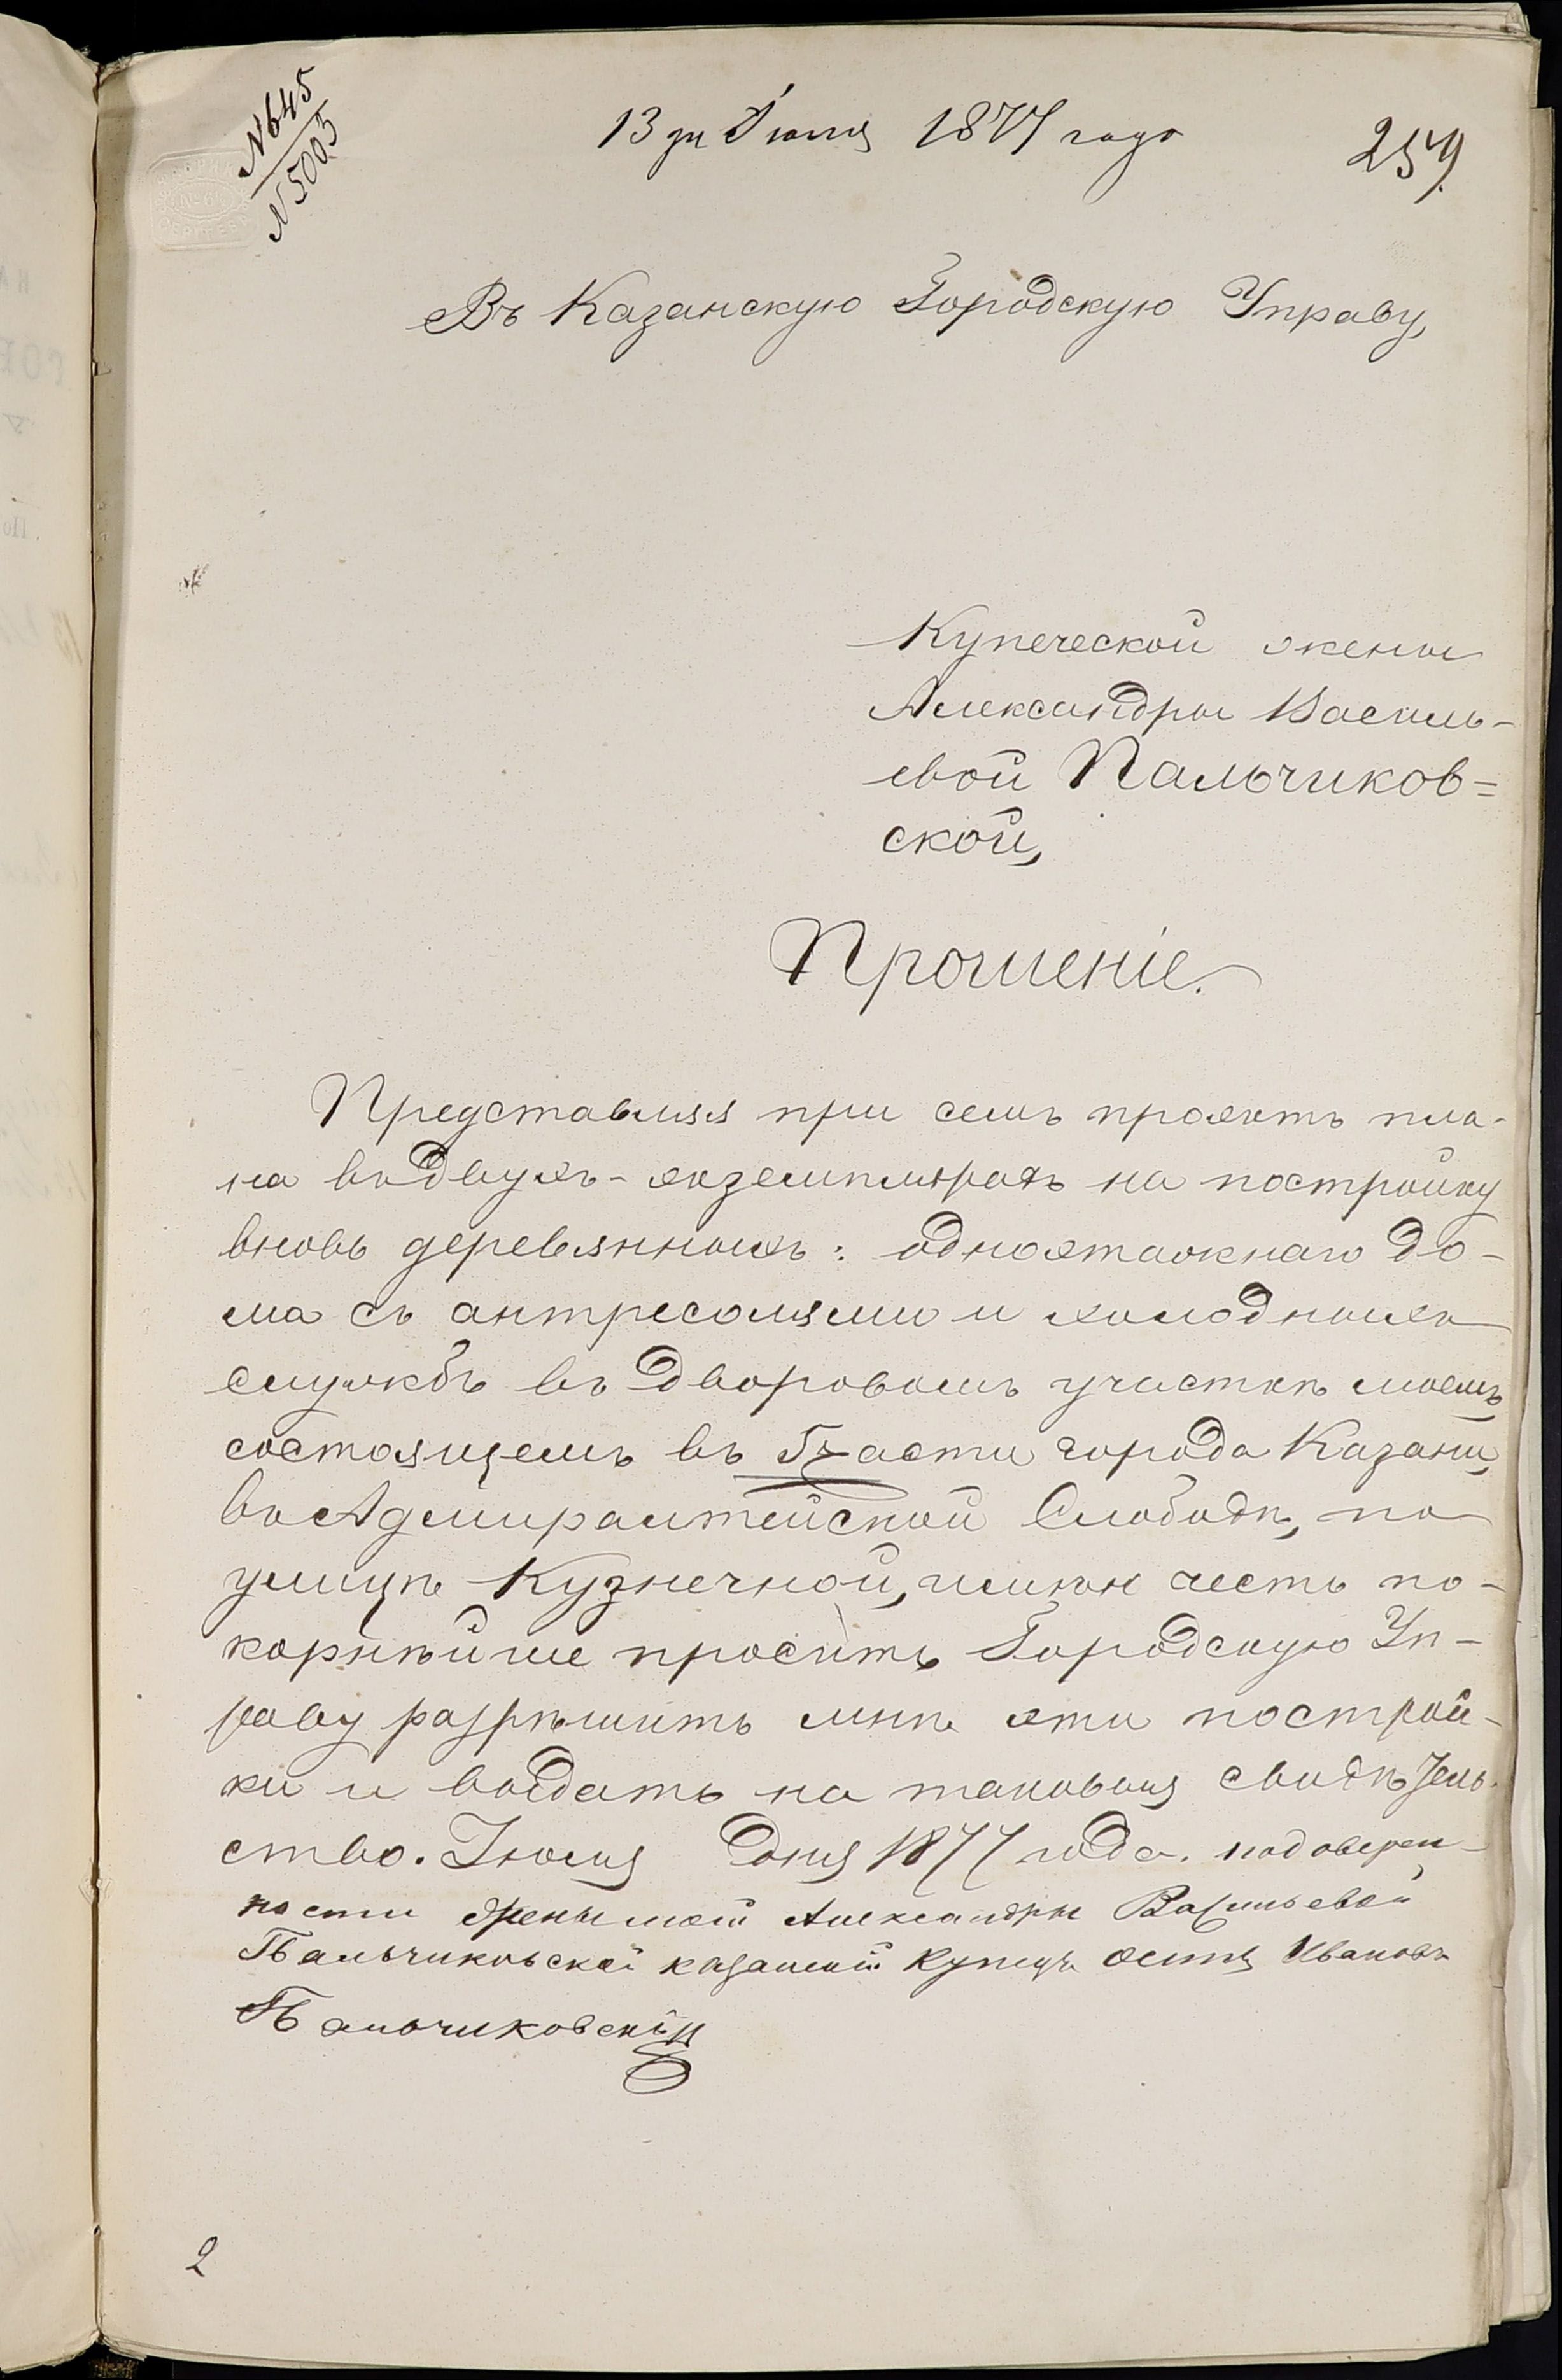 № 645
№ 5003
13 го Іюля 1877 года
259.
Въ Казанскую Городскую Управу,
Купеческой жены
Александры Василь-
евой Пальчиков=
ской,
Прошеніе.
Представляя при семъ проэктъ пла-
на въ двухъ-экземплярахъ на постройку
вновь деревянныхъ: одноэтажнаго до-
ма съ антресолями и холодныхъ
службъ въ дворовомъ участкѣ моемъ
состоящемъ въ 5 части города Казани,
въ Адмиралтейской Слободѣ, по
улицѣ Кузнечной, имѣю честь по-
корнѣйше просить Городскую Уп-
раву разрѣшить мнѣ эти построй-
ки и выдать на таковыя свидѣтель-
ство. Іюля дня 1877 года. по доверен-
ности жены моей Александры Васильевой
Пальчиковской казанский Купецъ Осипъ Ивановъ
Пальчиковскій
2